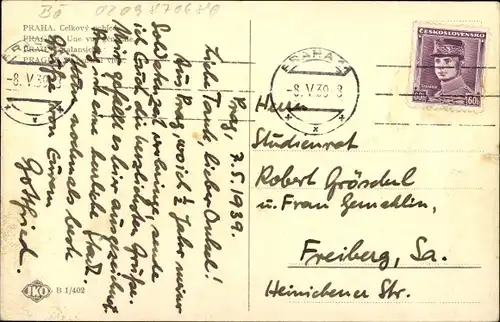 Bö 0209 870680
PRAHA. Celkový
PRAHA. Une vue
PRAHA 
-8.V.39-8
ČESKOSLOVENSKO
160h
Prag, 7.5.1939.
Liebe Tante, lieber Onkel!
Aus Prag, wo ich ½ Jahr meiner
Soldatenzeit verbringe, sende
ich Euch die herzlichsten Grüße.
Mir gefällt es hier ausgezeichnet
Prag ist eine herrliche Stadt
nochmals herzl.
Grüße von Eurem
Gottfried.
Herrn
Studienrat
Robert Gröschel
u. Frau Gemahlin,
Freiberg, Sa.
Heinichener Str.
B 1/402